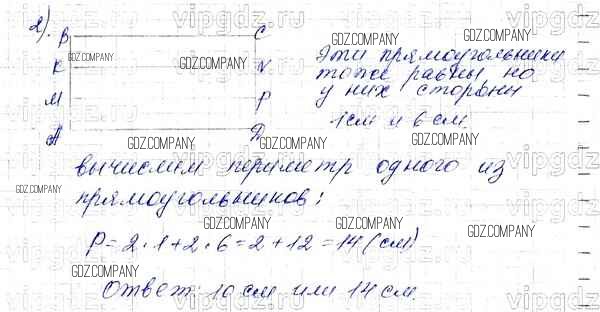 2).
B C
K N
M P
A D
Эти прямоугольники
тоже равны но
у них стороны
1см и 6 см.
вычислим периметр одного из
прямоугольников:
P = 2 · 1 + 2 · 6 = 2 + 12 = 14 (см)
Ответ: 10 см или 14 см.
GDZ.COMPANY
GDZ.COMPANY
GDZ.COMPANY
GDZ.COMPANY
GDZ.COMPANY
GDZ.COMPANY
GDZ.COMPANY
GDZ.COMPANY
GDZ.COMPANY
GDZ.COMPANY
GDZ.COMPANY
GDZ.COMPANY
GDZ.COMPANY
vipgdz